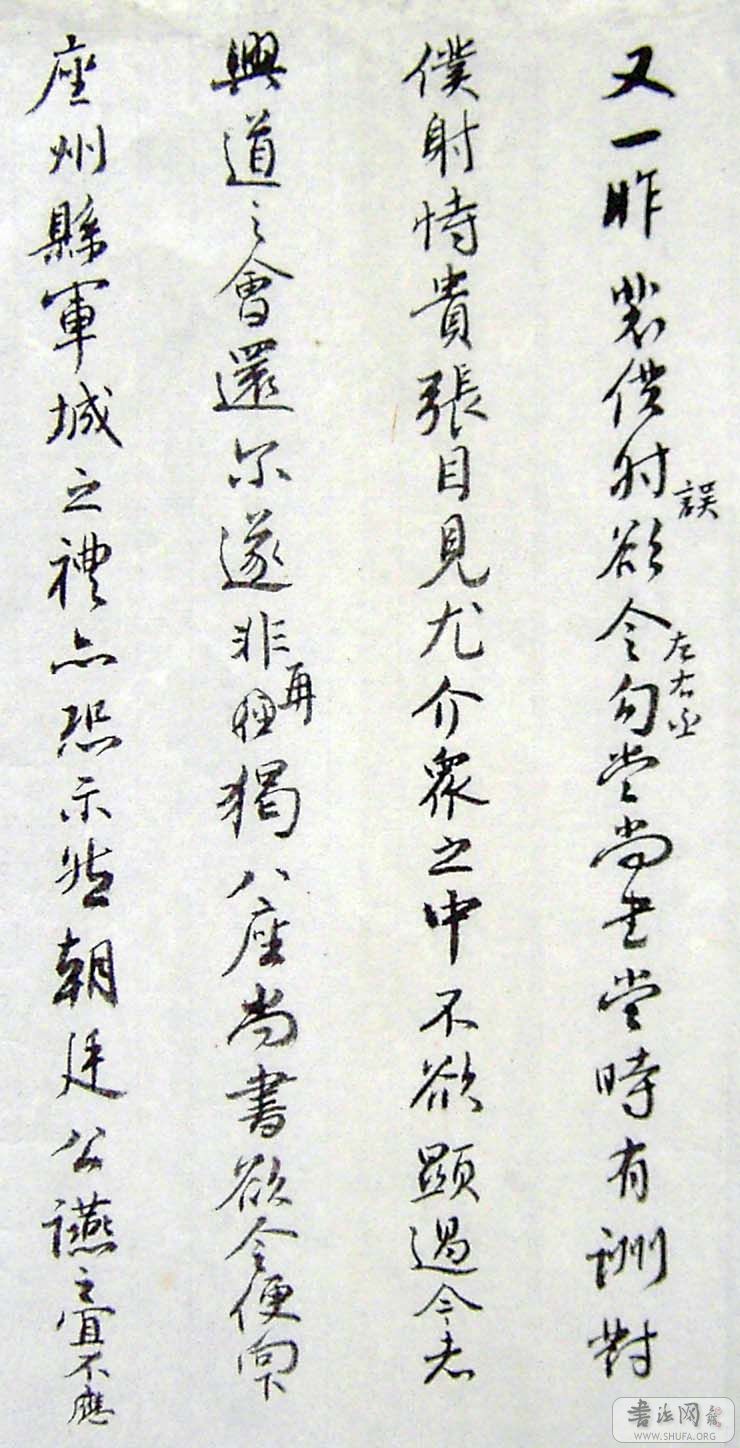 又一昨裴僕射誤欲令左右丞勾當尚書當時有詶對
僕射恃貴張目見尤介衆之中不欲顯過今者
興道之會還尔遂非再猲八座尚書欲令便向下
座州縣軍城之禮亦恐未然朝廷公讌之宜不應
书法网
WWW.SHUFA.ORG